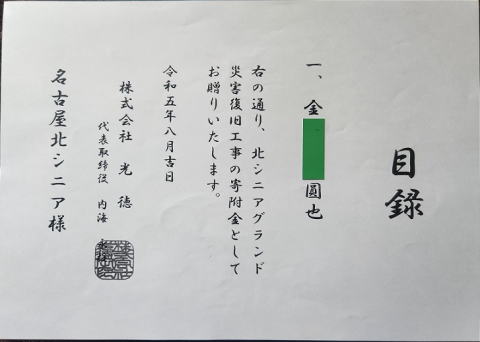 目録
一、金 圓也
右の通り、北シニアグランド
災害復旧工事の寄附金として
お贈りいたします。
令和五年八月吉日
株式会社 光徳
代表取締役 内海
名古屋北シニア様